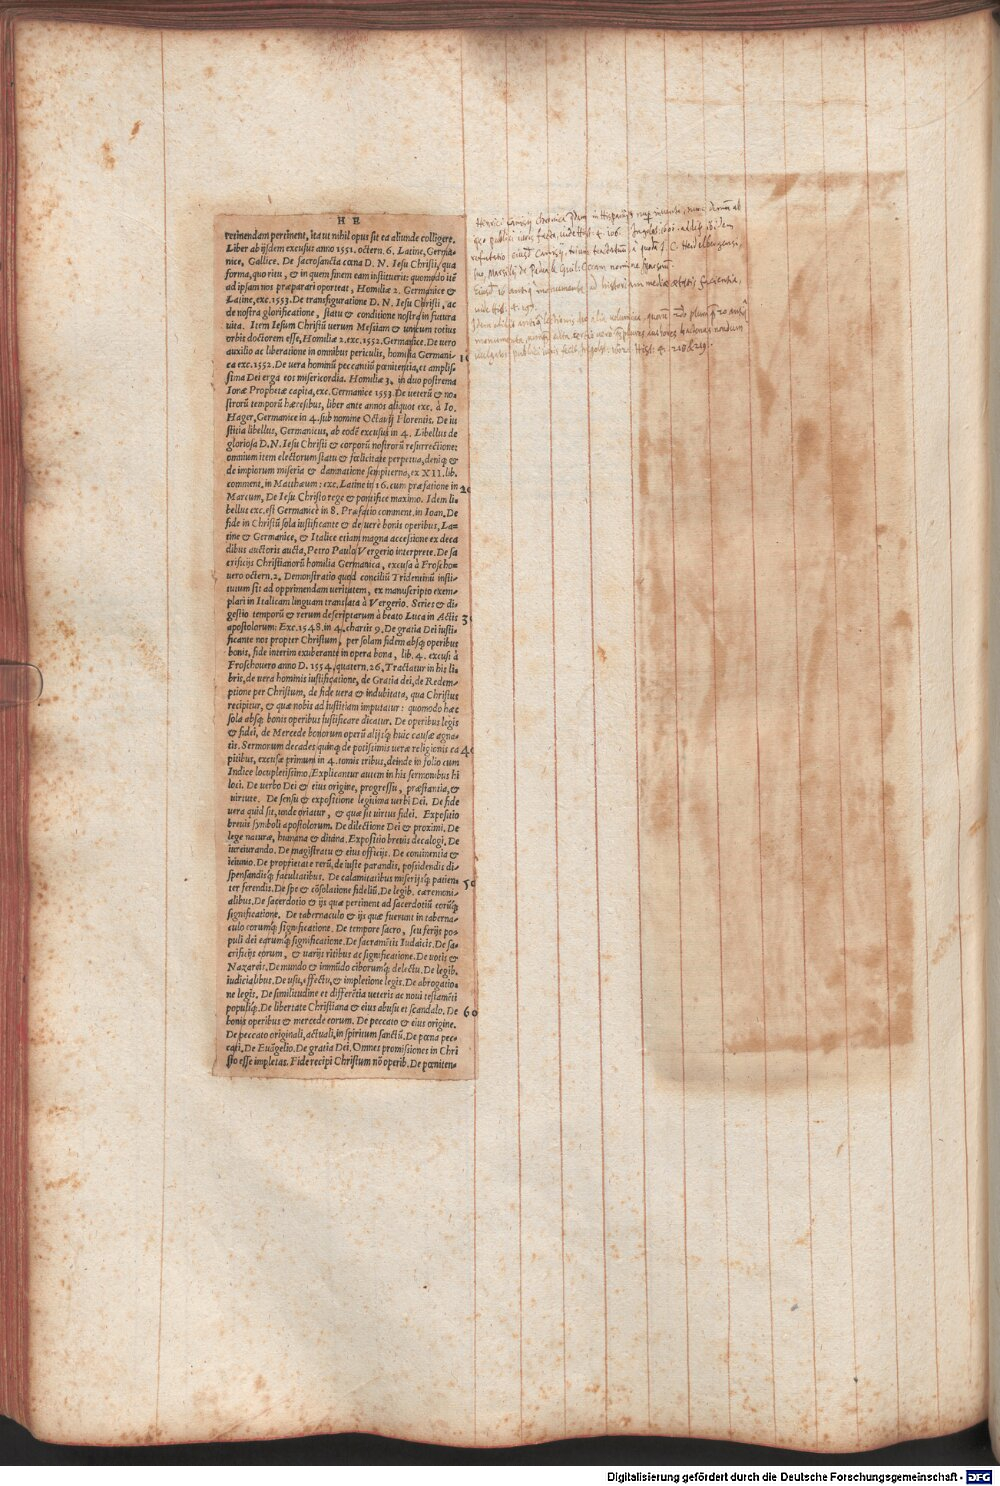 H E
tetinendam pertinent, ita ut nihil opus sit ea aliunde colligere.
Liber ab ijsdem excusus anno 1551. octern. 6. Latine, Germa-
nice, Gallice. De sacrosancta cœna D. N. Iesu Christi, qua
forma, quo ritu, & in quem finem eam instituerit: quomodo itẽ
ad ipsam nos præparari oporteat, Homiliæ 2. Germanice &
Latine, exc. 1553. De transfiguratione D. N. Iesu Christi, ac
de nostra glorificatione, statu & conditione nostra in futura
uita. Item Iesum Christũ uerum Messiam & unicum totius
orbis doctorem esse, Homiliæ 2. exc. 1552. Germanice. De uero
auxilio ac liberatione in omnibus periculis, homilia Germani- 10
ca exc. 1552. De uera hominũ peccantiũ pœnitentia, et amplis-
sima Dei erga eos misericordia. Homiliæ 3, in duo postrema
Ionæ Prophetæ capita, exc. Germanice 1553. De ueterũ & no-
strorũ temporũ hæresibus, liber ante annos aliquot exc. à Io.
Hager, Germanice in 4. sub nomine Octauij Florentis. De iu
stitia libellus, Germanicus, ab eodẽ excusus in 4. Libellus de
gloriosa D. N. Iesu Christi & corporũ nostrorũ resurrectione:
omnium item electorum statu & fœlicitate perpetua, deniq; &
de impiorum miseria & damnatione sempiterna, ex XII. lib.
comment. in Matthæum: exc. Latine in 16. cum præfatione in 20
Marcum, De Iesu Christo rege & pontifice maximo. Idem li-
bellus exc. est Germanicè in 8. Præfatio comment. in Ioan. De
fide in Christũ sola iustificante & de uerè bonis operibus, La-
tine & Germanice, & Italice etiam magna accessione ex deca
dibus auctoris aucta, Petro Paulo Vergerio interprete. De sa
crificijs Christianorũ homilia Germanica, excusa à Froscho-
uero octern. 2. Demonstratio quod conciliũ Tridentinũ insti-
tutum sit ad opprimendam ueritatem, ex manuscripto exem-
plari in Italicam linguam translata à Vergerio. Series & di-
gestio temporũ & rerum descriptarum à beato Luca in Actis 30
apostolorum: Exc. 1548. in 4. chartis 9. De gratia Dei iusti-
ficante nos propter Christum, per solam fidem absq; operibus
bonis, fide interim exuberante in opera bona, lib. 4. excusi à
Froschouero anno D. 1554, quatern. 26. Tractatur in his li-
bris, de uera hominis iustificatione, de Gratia dei, de Redem-
ptione per Christum, de fide uera & indubitata, qua Christus
recipitur, & quæ nobis ad iustitiam imputatur: quomodo hæc
sola absq; bonis operibus iustificare dicatur. De operibus legis
& fidei, de Mercede bonorum operũ alijsq; huic causæ agna-
tis. Sermonum decades quinq; de potissimis ueræ religionis ca 40
pitibus, excusæ primum in 4. tomis tribus, deinde in folio cum
Indice locupletissimo. Explicantur autem in his sermonibus hi
loci. De uerbo Dei & eius origine, progressu, præstantia, &
uirtute. De sensu & expositione legitima uerbi Dei. De fide
uera quid sit, unde oriatur, & quæ sit uirtus fidei. Expositio
breuis symboli apostolorum. De dilectione Dei & proximi. De
lege naturæ, humana & diuina. Expositio breuis decalogi. De
iureiurando. De magistratu & eius officijs. De continentia &
ieiunio. De proprietate rerũ, de iuste parandis, possidendis di-
spensandisq; facultatibus. De calamitatibus miserijsq; patien- 50
ter ferendis. De spe & cõsolatione fideliũ. De legib. cæremoni-
alibus. De sacerdotio & ijs quæ pertinent ad sacerdotiũ eorũq;
significatione. De tabernaculo & ijs quæ fuerunt in taberna-
culo eorumq; significatione. De tempore sacro, seu ferijs po-
puli dei earumq; significatione. De sacramẽtis Iudaicis. De sa-
crificijs eorum, & uarijs ritibus ac significatione. De uotis &
Nazaræis. De mundo & immũdo ciborumq; delectu. De legib.
iudicialibus. De usu, effectu, & impletione legis. De abrogatio-
ne legis. De similitudine et differẽtia ueteris ac noui testamẽti
populiq;. De libertate Christiana & eius abusu et scandalo. De 60
bonis operibus & mercede eorum. De peccato & eius origine.
De peccato originali, actuali, in spiritum sanctũ. De pœna pec-
cati. De Euãgelio. De gratia Dei. Omnes promissiones in Chri
sto esse impletas. Fide recipi Christum nõ operib. De pœniten-
Henrici Canisij chronica
publici iuris facta, vide Hist. 4. 106.
refutatio Canisij, Heidelbergensi,
Marsilij de Padua & Guil. Occam nomine
monumenta ad historiam mediæ ætatis
vide Hist. 4.
Hist. 4. 218 & 219.
Digitalisierung gefördert durch die Deutsche Forschungsgemeinschaft - DFG